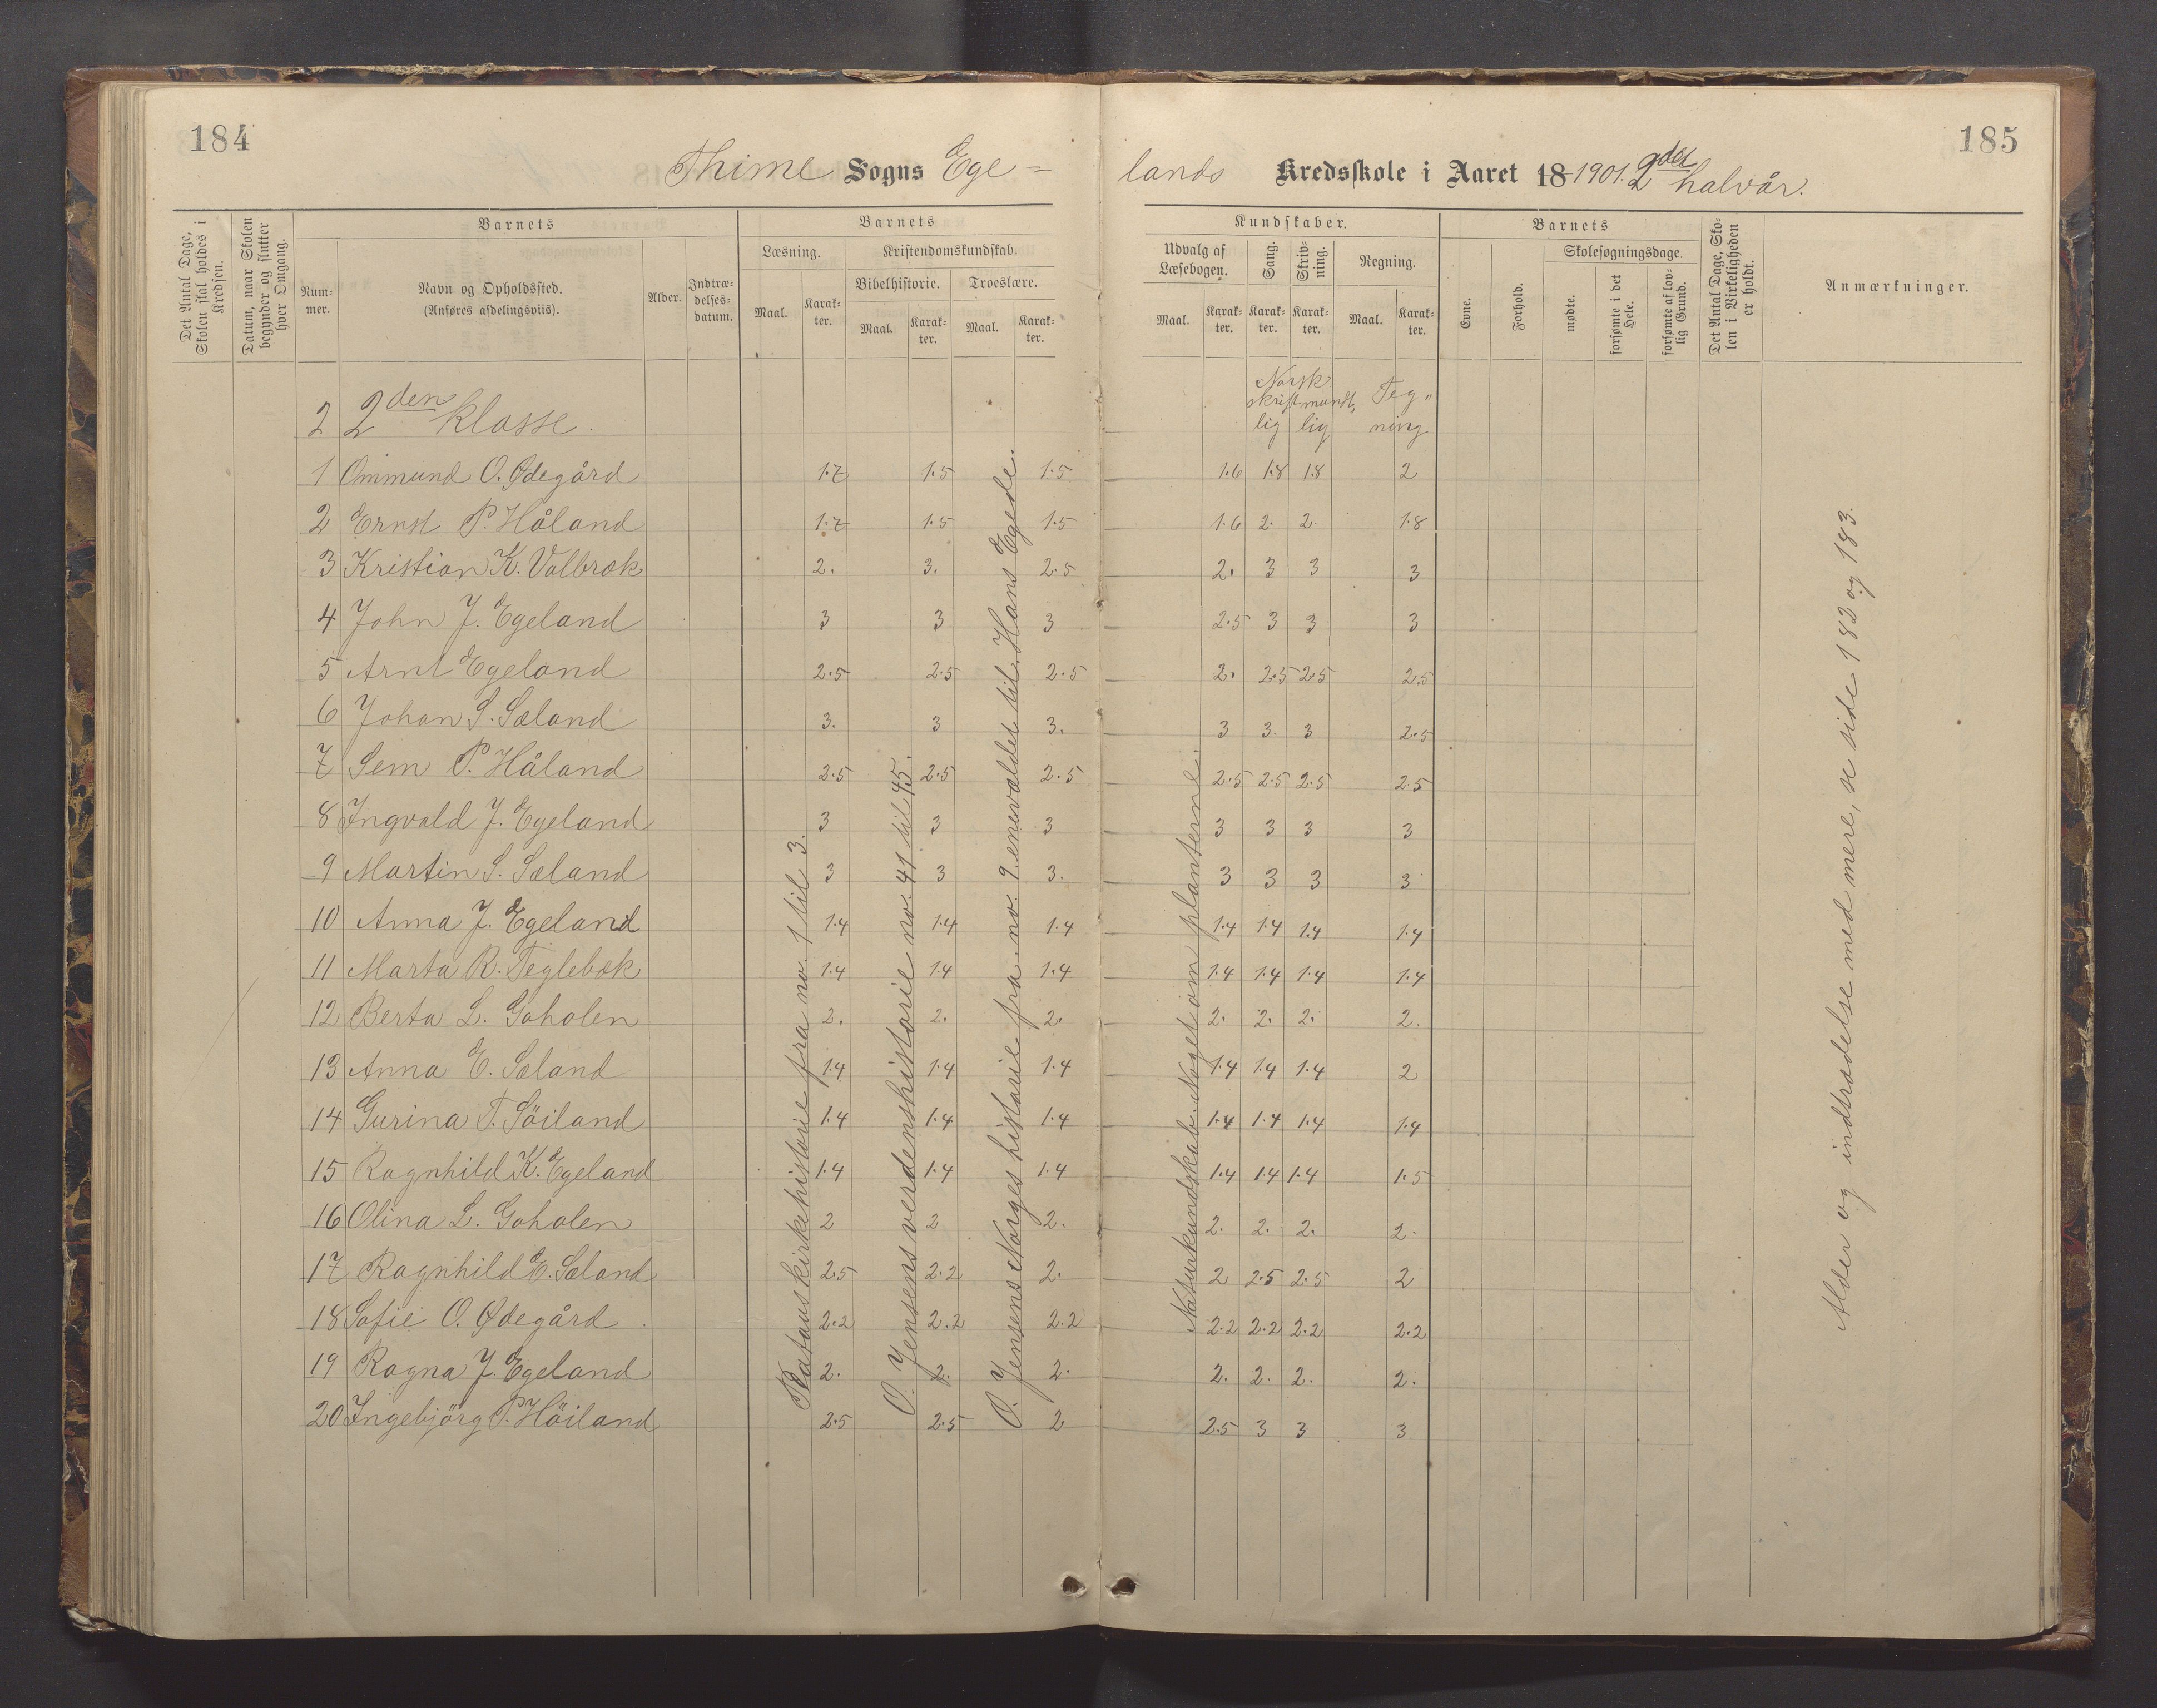 184
Thime Sogns Ege=
Det Antal Dage, Skolen skal holdes i Kredsen.
Datum, naar Skolen begynder og slutter hver Omgang.
Barnets
Nummer.
Navn og Opholdssted.
(Anføres afdelingsviis).
Alder.
Indtrædelsesdatum.
Barnets
Læsning.
Kristendomskundskab.
Bibelhistorie.
Troeslære.
Maal.
Karakter.
Maal.
Karakter.
Maal.
Karakter.
2 2den klasse.
1 Ommund O. Ødegård 1.7 1.5 1.5
2 Ernst P. Håland 1.7 1.5 1.5
3 Kristian K. Valbræk 2. 3. 2.5
4 John J. Egeland 3 3 3
5 Arnt Egeland 2.5 2.5 2.5
6 Johan S. Sæland 3. 3 3.
7 Sem P. Håland 2.5 2.5 2.5
8 Ingvald J. Egeland 3 3 3
9 Martin S. Sæland 3 3 3.
10 Anna J. Egeland 1.4 1.4 1.4
11 Marta R. Teglebæk 1.4 1.4 1.4
12 Berta L. Goholen 2. 2. 2.
13 Anna E. Sæland 1.4 1.4 1.4
14 Gurina T. Söiland 1.4 1.4 1.4
15 Ragnhild K. Egeland 1.4 1.4 1.4
16 Olina L. Goholen 2 2 2.
17 Ragnhild E. Sæland 2.5 2.2 2.
18 Sofie O. Ødegård. 2.2 2.2 2.2
19 Ragna J. Egeland 2. 2. 2.
20 Ingebjörg P. Höiland 2.5 2.5 2
kirkehistorie fra no. 1 til 3.
O. Jensens verdenshistorie no. 41 til 45.
O. Jensens Norges historie fra no. 9 enevældet til Hans Egede.
185
lands Kredsskole i Aaret 18-1901. 2det halvår.
Kundskaber.
Udvalg af Læsebogen.
Sang.
Skrivning.
Regning.
Maal.
Karakter.
Karakter.
Karakter.
Maal.
Karakter.
Barnets
Evne.
Forhold.
Skolesøgningsdage.
mødte.
forsømte i det Hele.
forsømte af lovlig Grund.
Det Antal Dage, Skolen i Virkeligheden er holdt.
Anmærkninger.
Norsk
skrift mundt„ Teg„
lig lig ning
1.6 1.8 1.8 2
1.6 2. 2. 1.8
2. 3 3 3
2.5 3 3 3
2. 2.5 2.5 2.5
3 3. 3 2.5
2.5 2.5 2.5 2.5
3 3 3 3
3 3 3 3
1.4 1.4 1.4 1.4
1.4 1.4 1.4 1.4
2. 2. 2. 2.
1.4 1.4 1.4 2
1.4 1.4 1.4 1.4
1.4 1.4 1.4 1.5
2. 2. 2. 2.
2 2.5 2.5 2
2.2 2.2 2.2 2.2
2. 2. 2. 2.
2.5 3 3 3
Naturkundskab. Noget om planterne.
Alder og indtrædelse med mere, se side 182 og 183.